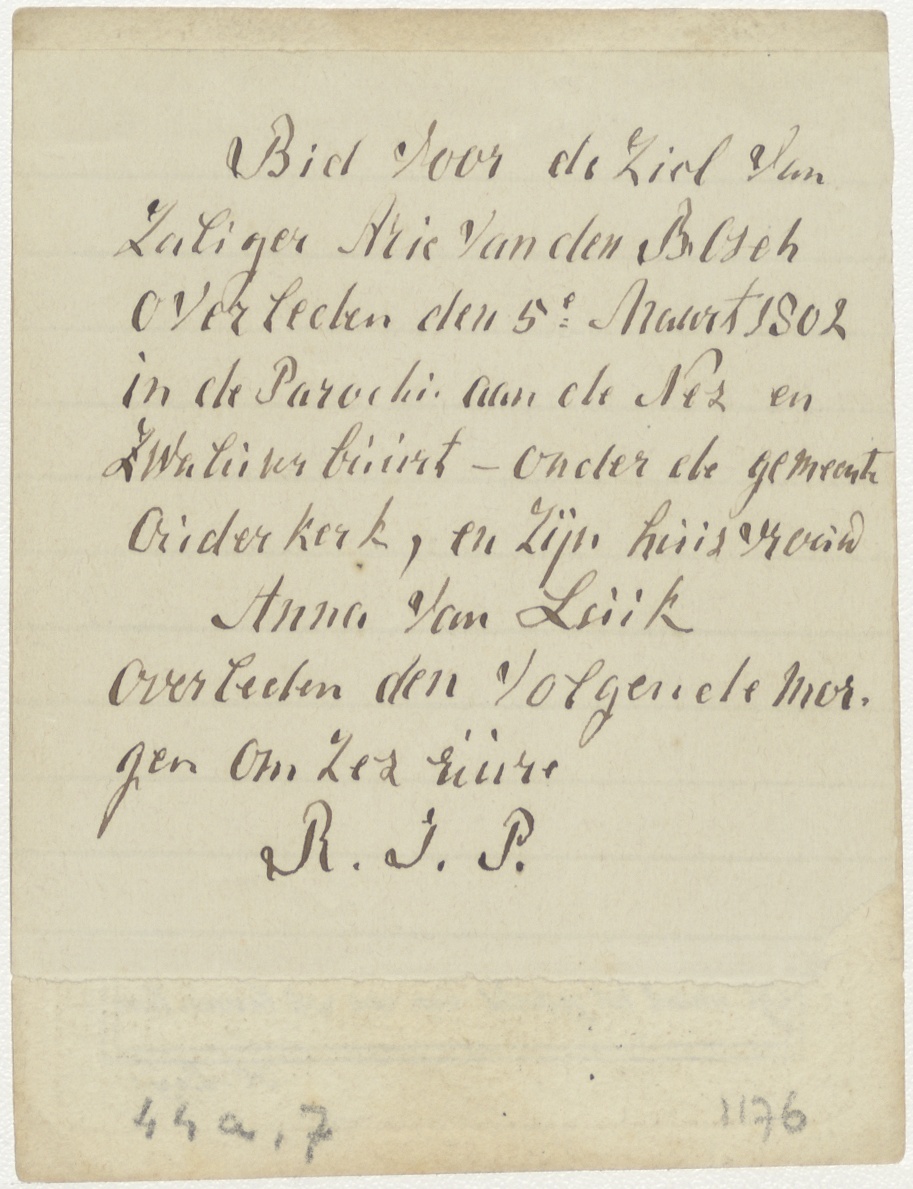 Bid Voor de Ziel Van
Zaliger Arie Van den Bosch
overleden den 5e Maart 1802
in de Parochi. aan de Nes en
Zwaluwe buurt – onder de gemeente
Ouderkerk, en Zijn huisvrouw
Anna Van Luik
overleden den Volgende mor.
gen om Zes uure
R. I. P.
44a, 7 1176